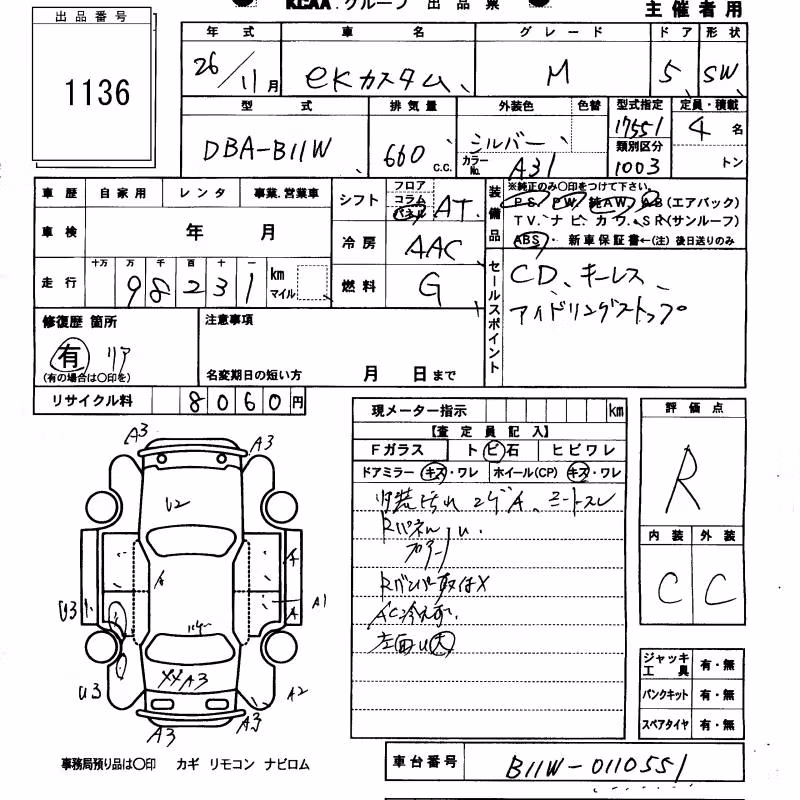 KCAA.グループ 出品票
主催者用
出品番号
1136
年式 車名 グレード ドア 形状
26/11月 eKカスタム M 5 SW
型式 排気量 外装色 色替 型式指定 定員・積載
DBA-B11W 660 c.c. シルバー 17551 4 名
カラーNo. A31 類別区分 1003 トン
車歴 自家用 レンタ 事業.営業車
車検 年 月
走行 十万 万 千 百 十 一
98231 km マイル
シフト フロア コラム パネル AT
冷房 AAC
燃料 G
装備品
※純正のみ○印をつけて下さい。
PS PW 純AW AB(エアバック)
TV.ナビ.カワ.SR(サンルーフ)
ABS 新車保証書←(注) 後日送りのみ
セールスポイント
CD、キーレス、
アイドリングストップ
修復歴 箇所
有 リア
(有の場合は○印を)
注意事項
名変期日の短い方 月 日まで
リサイクル料 8060円
現メーター指示 km
【査定員記入】
Fガラス トビ石 ヒビワレ
ドアミラー キズ・ワレ ホイール(CP) キズ・ワレ
内装汚れ コゲA、シートスレ
Rパネル U.
Rバンパー取付X
AC冷えず.
左面U大
評価点
R
内装 外装
C C
ジャッキ工具 有・無
パンクキット 有・無
スペアタイヤ 有・無
A3 A3
U2
A
A
U3 A1
A
XXA3
U3 A2
A3 A3
事務局預り品は○印 カギ リモコン ナビロム
車台番号 B11W-0110551